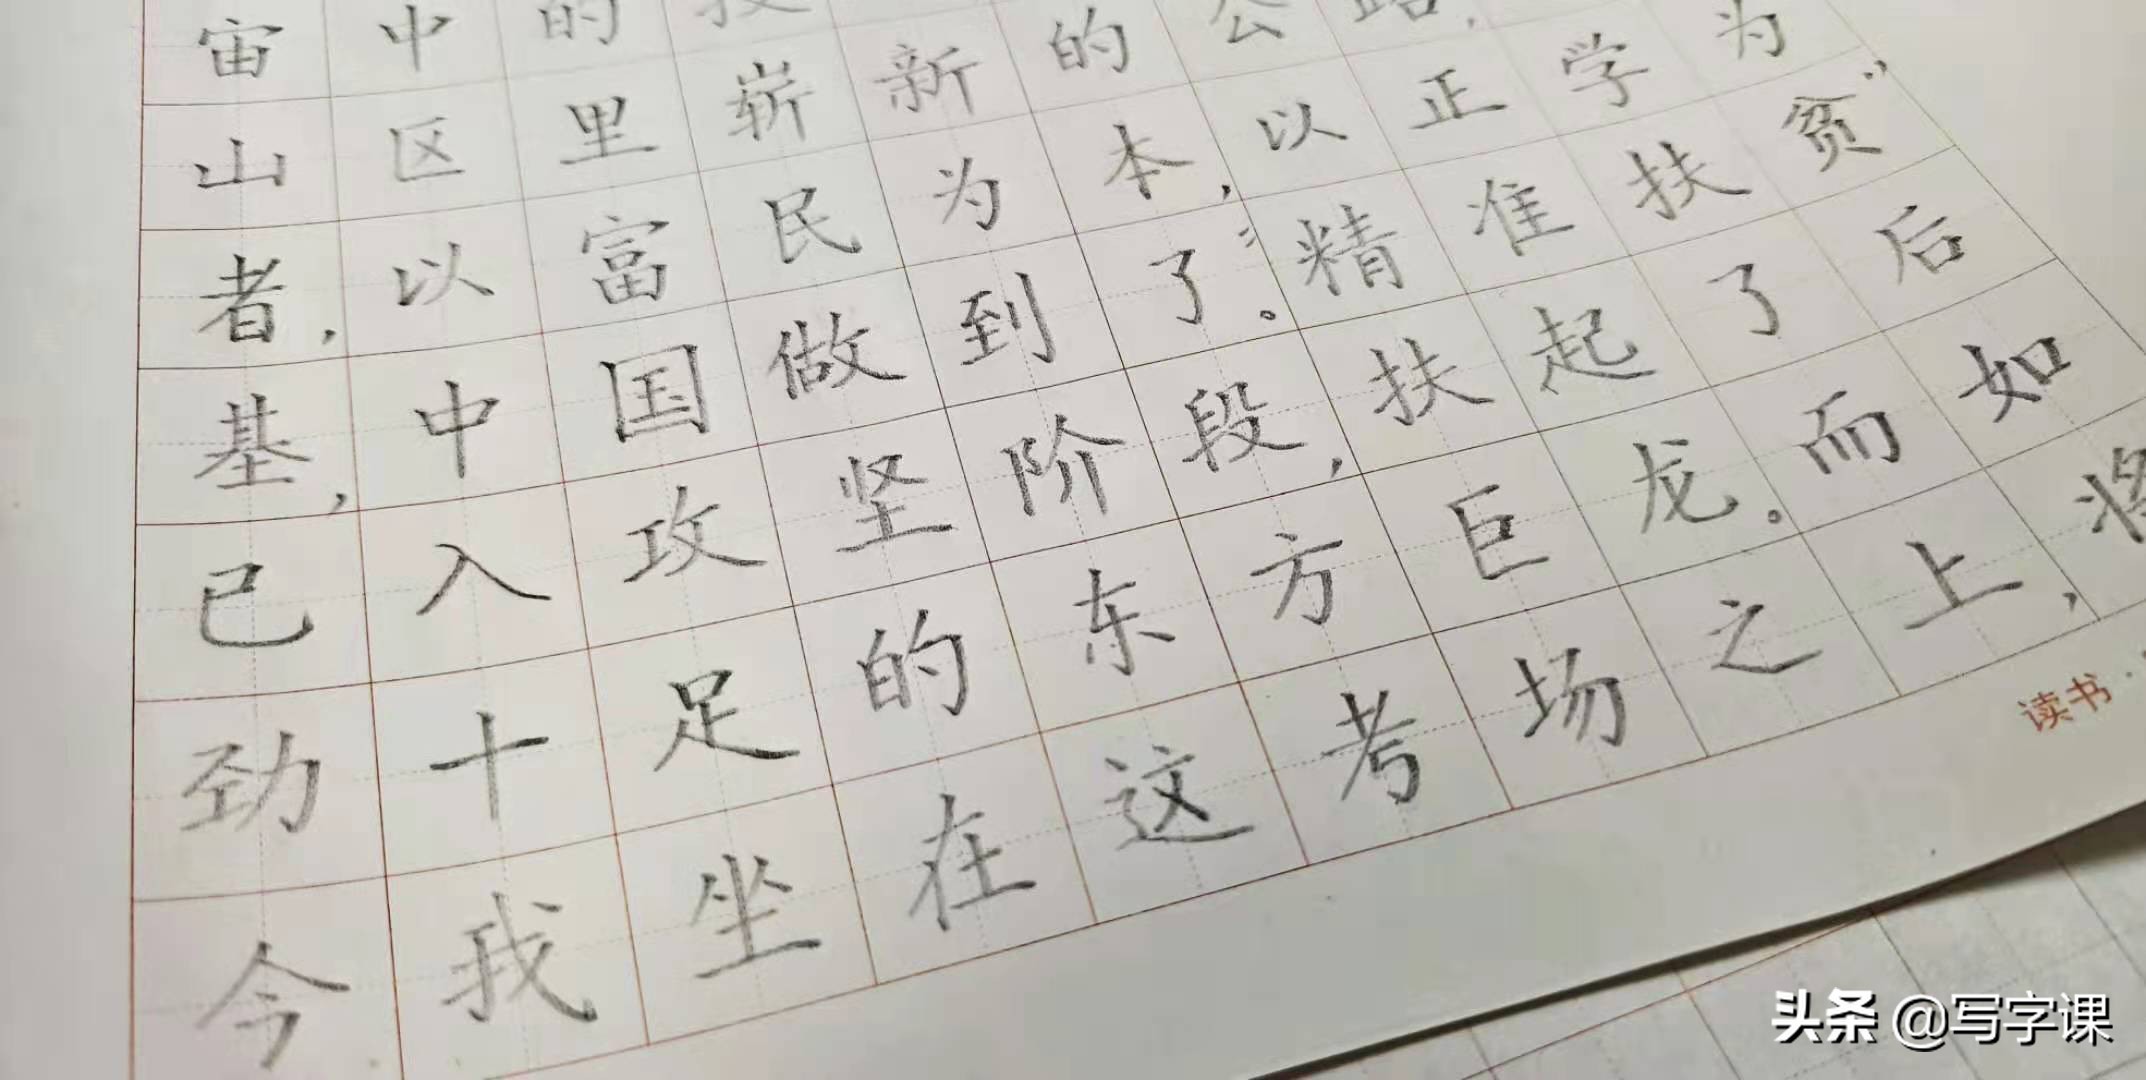 宙中的
山区里崭新的公路,
者,以富民为本,以正学为
基,中国做到了。“精准扶贫”
已入攻坚阶段,扶起了后
劲十足的东方巨龙。而如
今我坐在这考场之上,将
读书·
头条 @写字课